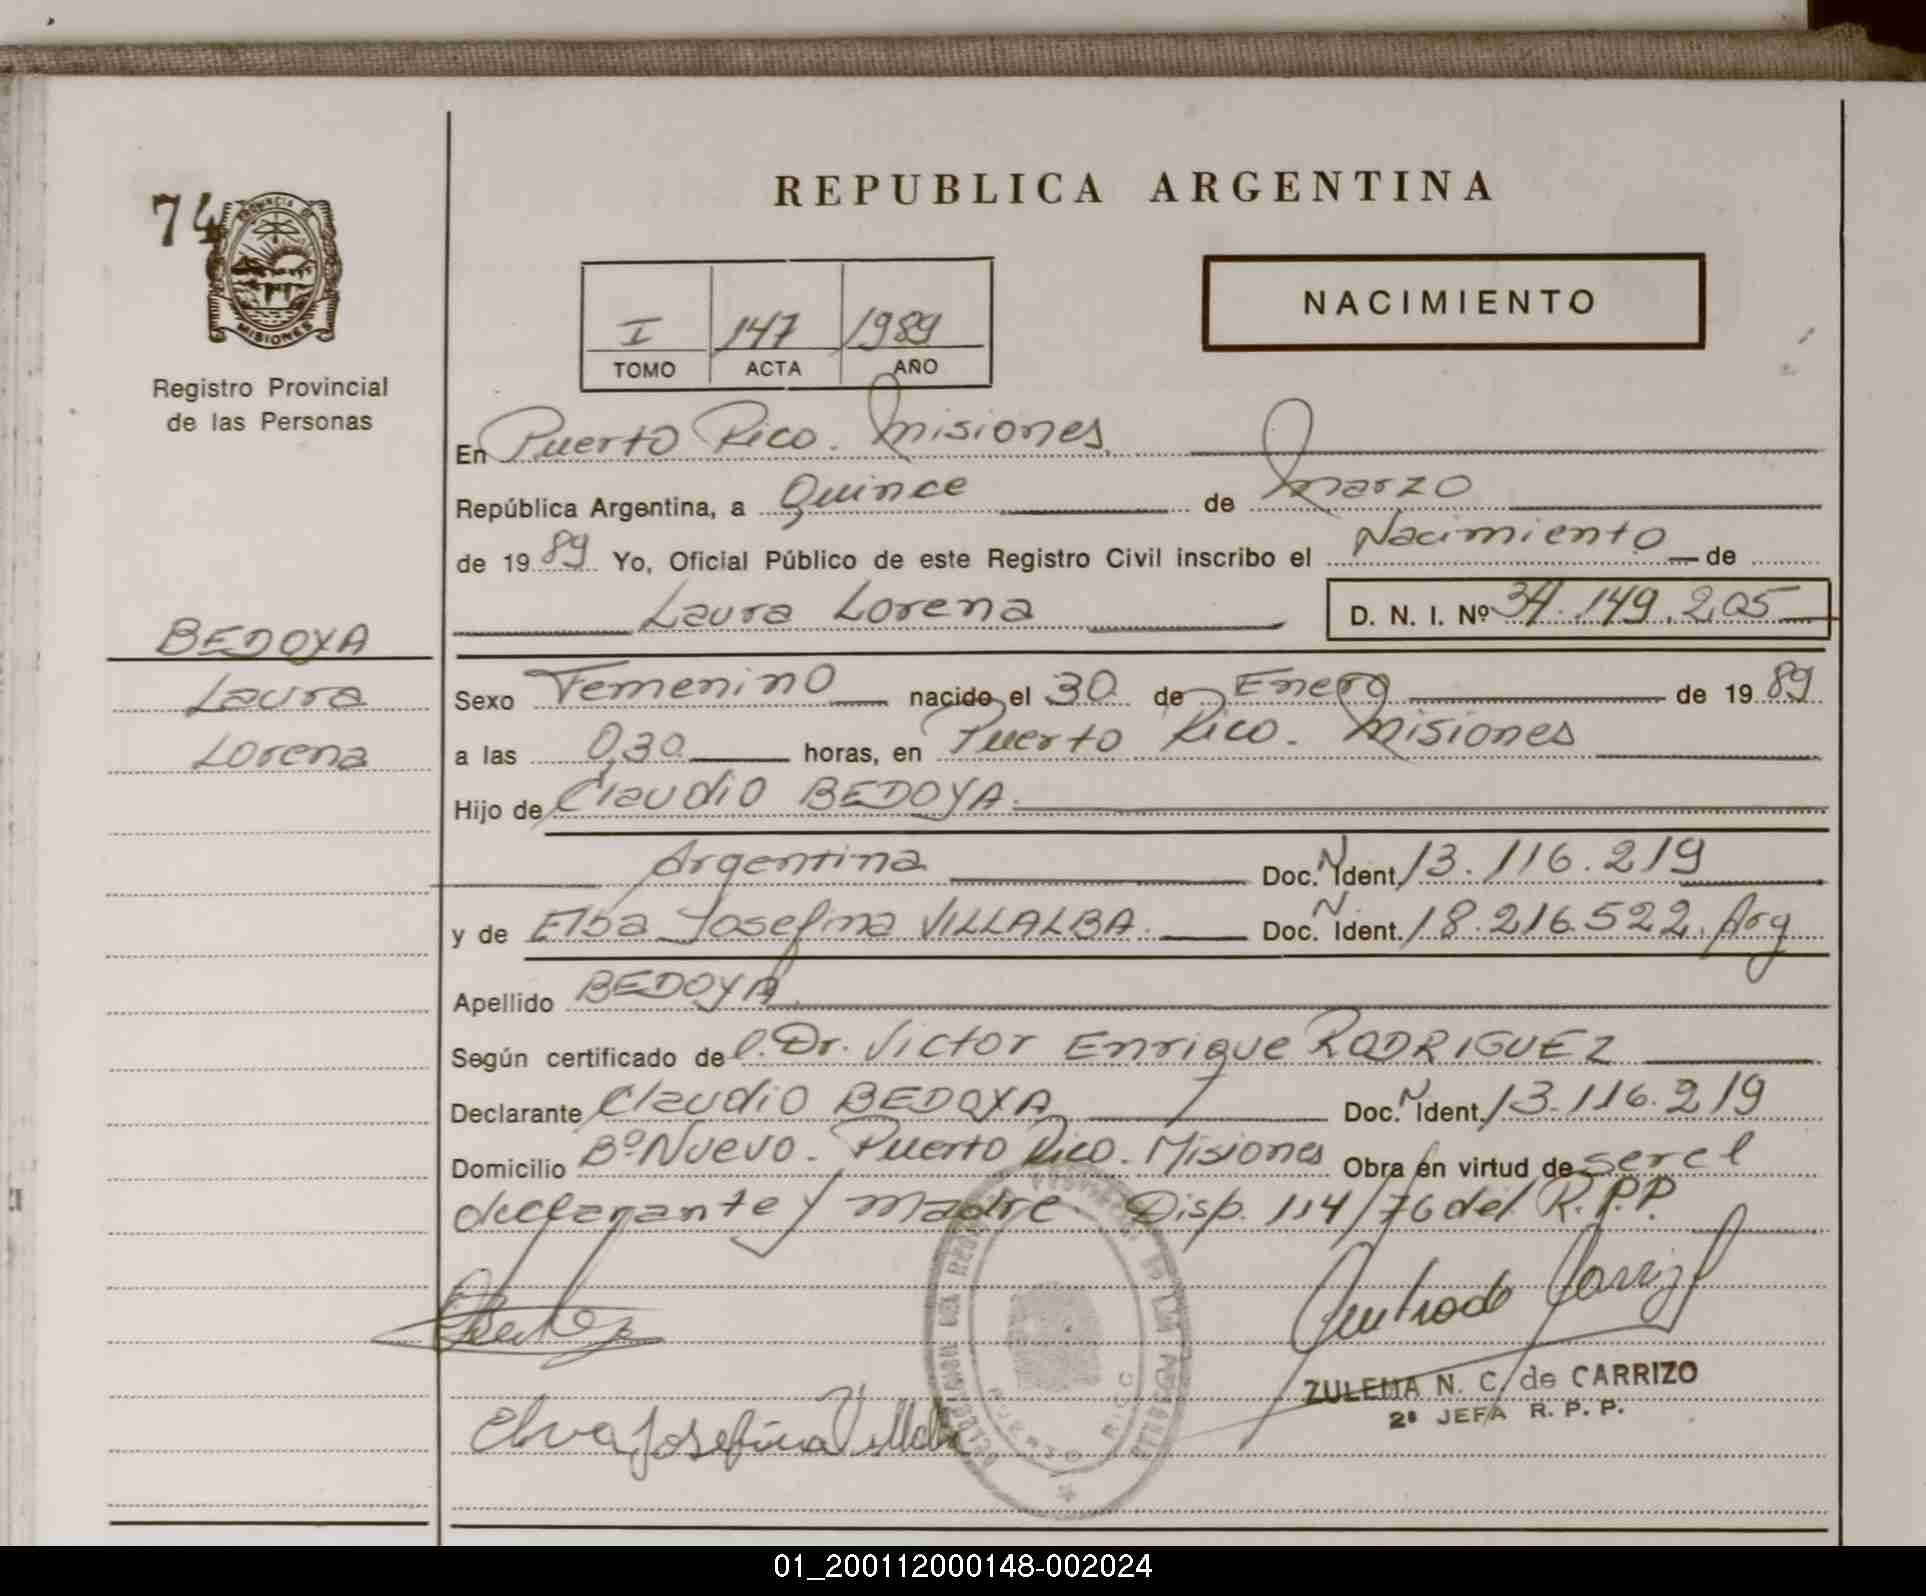 74
PROVINCIA DE
MISIONES
Registro Provincial
de las Personas
REPUBLICA ARGENTINA
I 147 1989
TOMO ACTA AÑO
NACIMIENTO
En Puerto Rico. Misiones
República Argentina, a Quince de Marzo
de 1989 Yo, Oficial Público de este Registro Civil inscribo el Nacimiento de
Laura Lorena D. N. I. Nº 34.149.205
BEDOYA
Laura
Lorena
Sexo Femenino nacido el 30 de Enero de 1989
a las 0,30 horas, en Puerto Rico. Misiones
Hijo de Claudio BEDOYA.
Argentina Doc. N Ident. 13.116.219
y de Elba Josefina VILLALBA. Doc. N Ident. 18.216.522. Arg
Apellido BEDOYA
Según certificado del. Dr. Victor Enrique RODRIGUEZ
Declarante Claudio BEDOYA Doc. N Ident. 13.116.219
Domicilio Bº Nuevo. Puerto Rico. Misiones Obra en virtud de ser el
declarante y madre Disp. 114/76 del R.P.P.
Elva Josefina Villalba
ZULEMA N. C. de CARRIZO
2ª JEFA R. P. P.
01_200112000148-002024